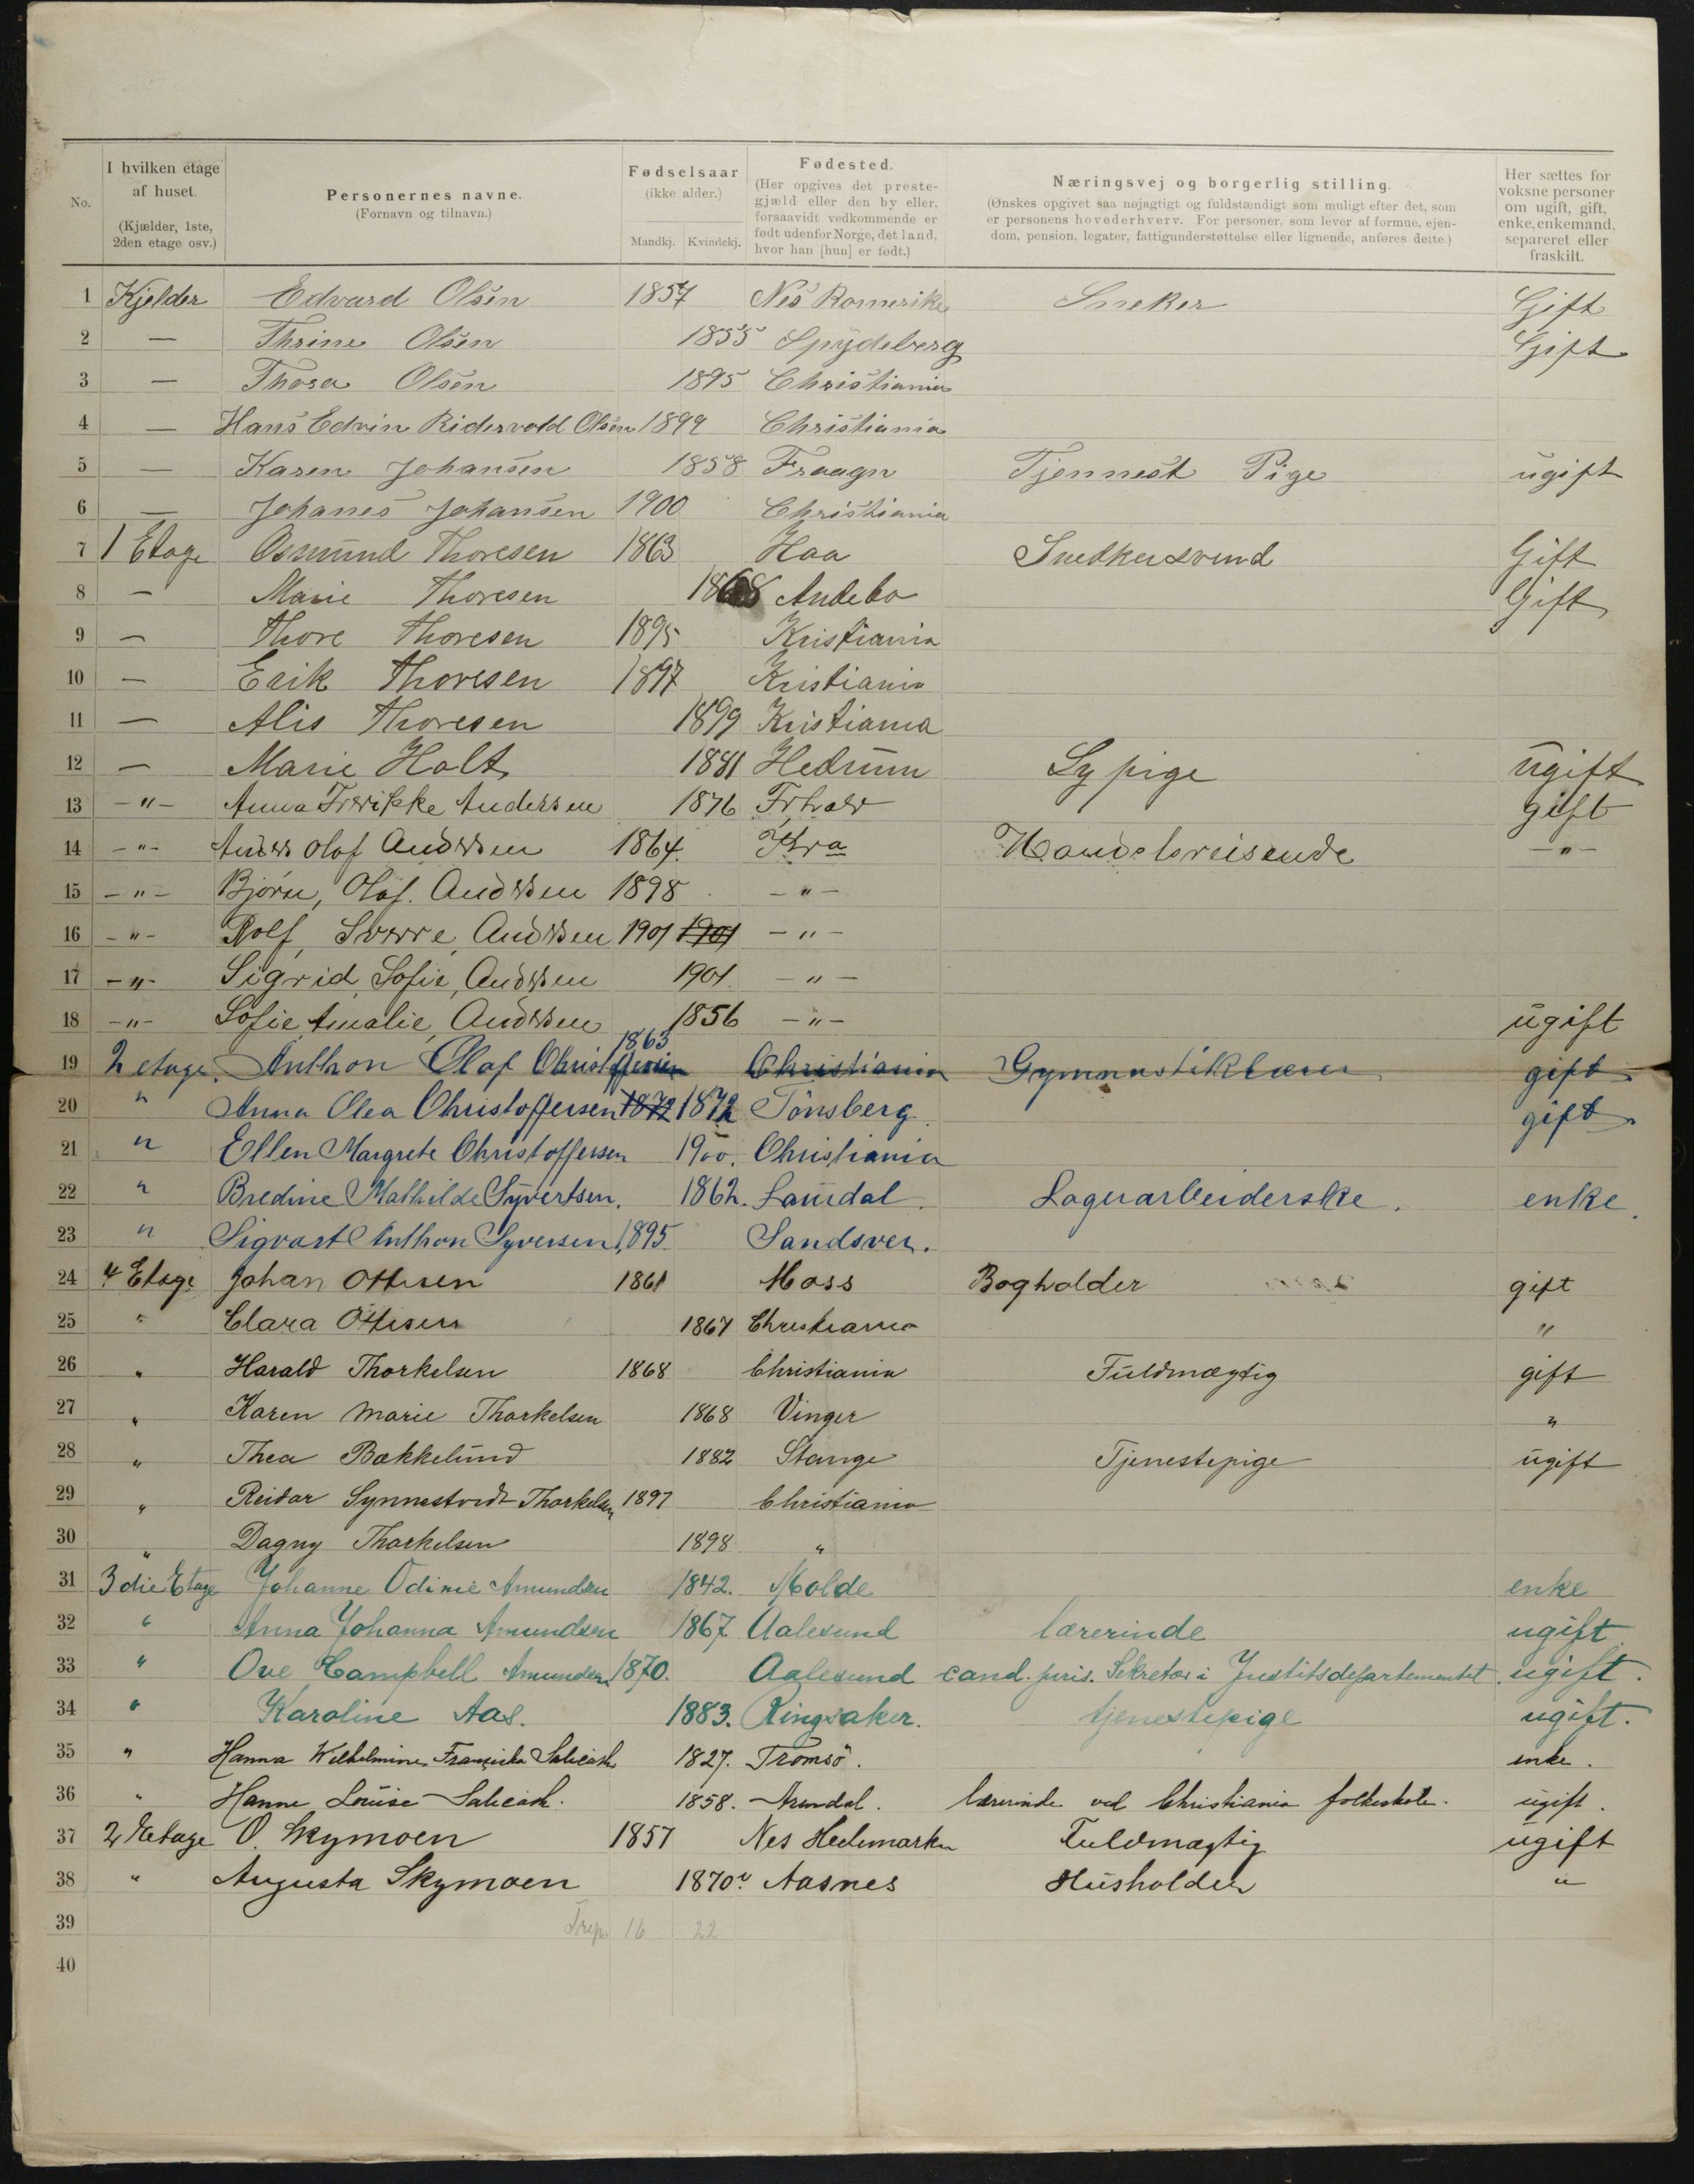 No.
I hvilken etage af huset. (Kjælder, 1ste, 2den etage osv.)
Personernes navne. (Fornavn og tilnavn.)
Fødselsaar (ikke alder.) Mandkj. Kvindekj.
Fødested. (Her opgives det prestegjæld eller den by eller, forsaavidt vedkommende er født udenfor Norge, det land, hvor han [hun] er født.)
Næringsvej og borgerlig stilling. (Ønskes opgivet saa nøjagtigt og fuldstændigt som muligt efter det, som er personens hovederhverv. For personer, som lever af formue, ejendom, pension, legater, fattigunderstøttelse eller lignende, anføres dette.)
Her sættes for voksne personer om ugift, gift, enke, enkemand, separeret eller fraskilt.
1 Kjelder Edvard Olsen 1857 Nes Romerike Sneker Gift
2 — Thrine Olsen 1855 Spydeberg Gift
3 — Thora Olsen 1895 Christiania
4 — Hans Edvin Ridervold Olsen 1899 Christiania
5 — Karen Johansen 1858 Fraagn Tjennest Pige ugift
6 — Johanes Johansen 1900 Christiania
7 1 Etage Osmund Thoresen 1863 Haa Snedkersvend Gift
8 — Marie Thoresen 1868 Andebo Gift
9 — Thore Thoresen 1895 Kristiania
10 — Erik Thoresen 1897 Kristiania
11 — Alis Thoresen 1899 Kristiania
12 — Marie Holt 1881 Hedrum Sypige ugift
13 -"- Anna Fredrikke Andersen 1876 gift
14 -"- Anders Olaf Andersen 1864. Kra Handelsreisende -"-
15 -"- Bjørn, Olaf. Andersen 1898 -"-
16 -"- Rolf, Sverre, Andersen 1901 1901 -"-
17 -"- Sigrid, Sofie, Andersen 1901. -"-
18 -"- Sofie Amalie, Andersen 1856 -"- ugift
19 2 etage. Anthon Olaf Christoffersen 1863 Christiania Gymnastiklærer gift
20 " Anna Olea Christoffersen 1872 1872 Tönsberg. gift
21 " Ellen Margrete Christoffersen 1900. Christiania
22 " Bredine Mathilde Syvertsen. 1862. Laurdal. Lagerarbeiderske. enke.
23 " Sigvart Anthon Syversen 1895. Sandsver.
24 4 Etage Johan Ottesen 1861 Moss Bogholder gift
25 " Clara Ottesen 1867 Christiania "
26 " Harald Thorkelsen 1868 Christiania Fuldmægtig gift
27 " Karen Marie Thorkelsen 1868 Vinger "
28 " Thea Bakkelund 1882 Stange Tjenestepige ugift
29 " Reidar Synnestvedt Thorkelsen 1897 Christiania
30 " Dagny Thorkelsen 1898 "
31 3die Etage Johanne Odine Amundsen 1842. Molde enke
32 " Anna Johanna Amundsen 1867 Aalesund lærerinde ugift
33 " Ove Campbell Amundsen 1870. Aalesund cand. juris. Sekretær i Justitsdepartementet. ugift.
34 " Karoline Aas. 1883. Ringsaker. tjenestepige ugift.
35 " Hanna Wilhelmine Franziska 1827. Tromsö. enke.
36 " Hanne Louise 1858. Arendal. lærerinde ved Christiania folkeskole. ugift.
37 2 Etage O. Skymoen 1857 Nes Hedemarken Fuldmægtig ugift
38 " Augusta Skymoen 1870 Aasnes Husholder "
39 16 22
40